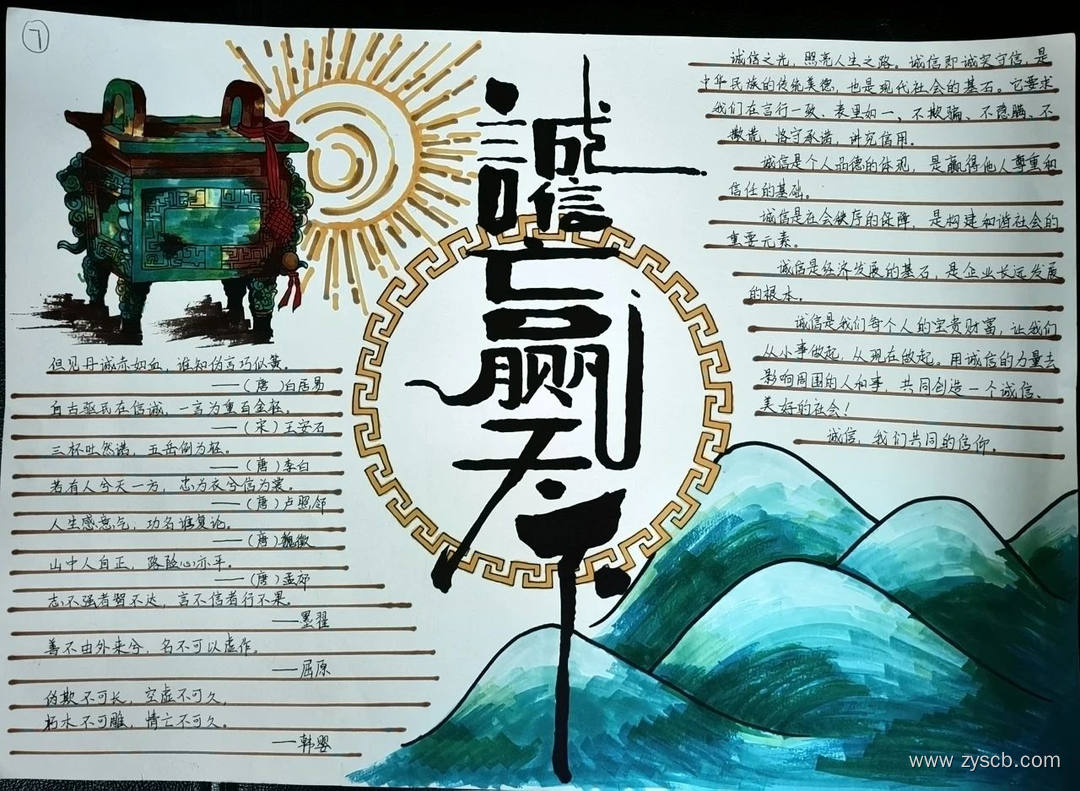 7
誠信赢天下
但见丹诚赤如血，谁知伪言巧似簧。
——（唐）白居易
自古驱民在信诚，一言为重百金轻。
——（宋）王安石
三杯吐然诺，五岳倒为轻。
——（唐）李白
若有人兮天一方，忠为衣兮信为裳。
——（唐）卢照邻
人生感意气，功名谁复论。
——（唐）魏徵
山中人自正，路险心亦平。
——（唐）孟郊
志不强者智不达，言不信者行不果。
——墨翟
善不由外来兮，名不可以虚作。
——屈原
伪欺不可长，空虚不可久，
朽木不可雕，情亡不可久。
——韩婴
诚信之光，照亮人生之路，诚信即诚实守信，是
中华民族的传统美德，也是现代社会的基石。它要求
我们在言行一致、表里如一、不欺骗、不隐瞒、不
撒谎，恪守承诺，讲究信用。
诚信是个人品德的体现，是赢得他人尊重和
信任的基础。
诚信是社会秩序的保障，是构建和谐社会的
重要元素。
诚信是经济发展的基石，是企业长远发展
的根本。
诚信是我们每个人的宝贵财富，让我们
从小事做起，从现在做起，用诚信的力量去
影响周围的人和事，共同创造一个诚信、
美好的社会！
诚信，我们共同的信仰。
www.zyscb.com